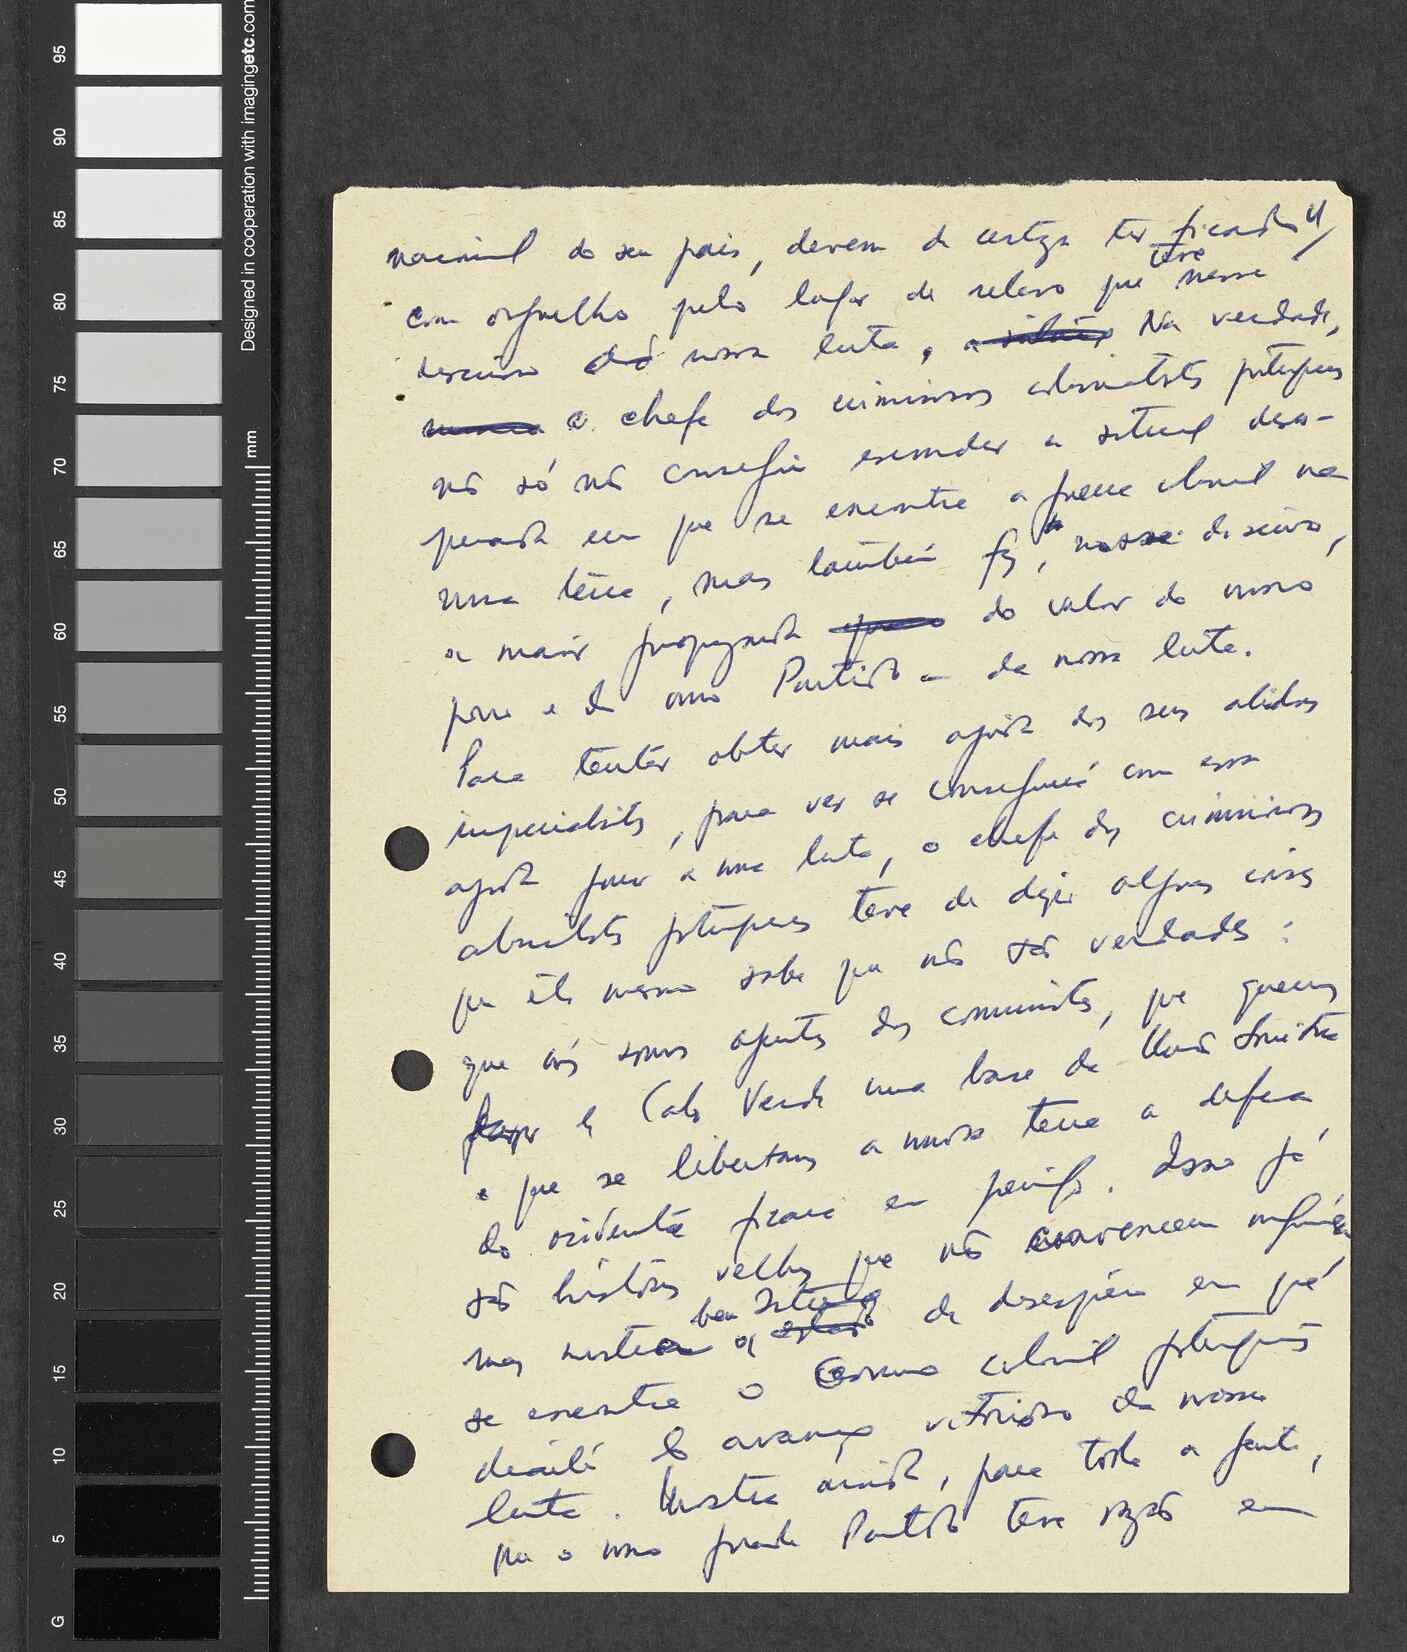 4/
nacional do seu país, devem de certeza ter ficado
com orgulho pelo lugar de relevo que teve nesse
discurso a nossa luta. Na verdade,
o chefe dos criminosos colonialistas portugueses
não só não conseguiu esconder a situação deses-
perada em que se encontra a guerra colonial na
nossa terra, mas também fez, nesse discurso,
a maior propaganda do valor do nosso
povo e do nosso Partido — da nossa luta.
Para tentar obter mais ajuda dos seus aliados
imperialistas, para ver se conseguirá com essa
ajuda parar a nossa luta, o chefe dos criminosos
colonialistas portugueses teve de dizer algumas coisas
que ele mesmo sabe que não são verdades:
que nós somos agentes dos comunistas, que queremos
fazer de Cabo Verde uma base da União Soviética
e que se libertamos a nossa terra a defesa
do ocidente ficará em perigo. Isso já
são histórias velhas que não convencem ninguém
mas mostram bem a situação de desespero em que
se encontra o Governo colonial português
diante do avanço vitorioso da nossa
luta. Mostra ainda, para toda a gente,
que o nosso grande Partido teve razão em
95
90
85
80
75
70
65
60
55
50
45
40
35
30
25
20
15
10
5
G
mm
Designed in cooperation with imagingetc.com